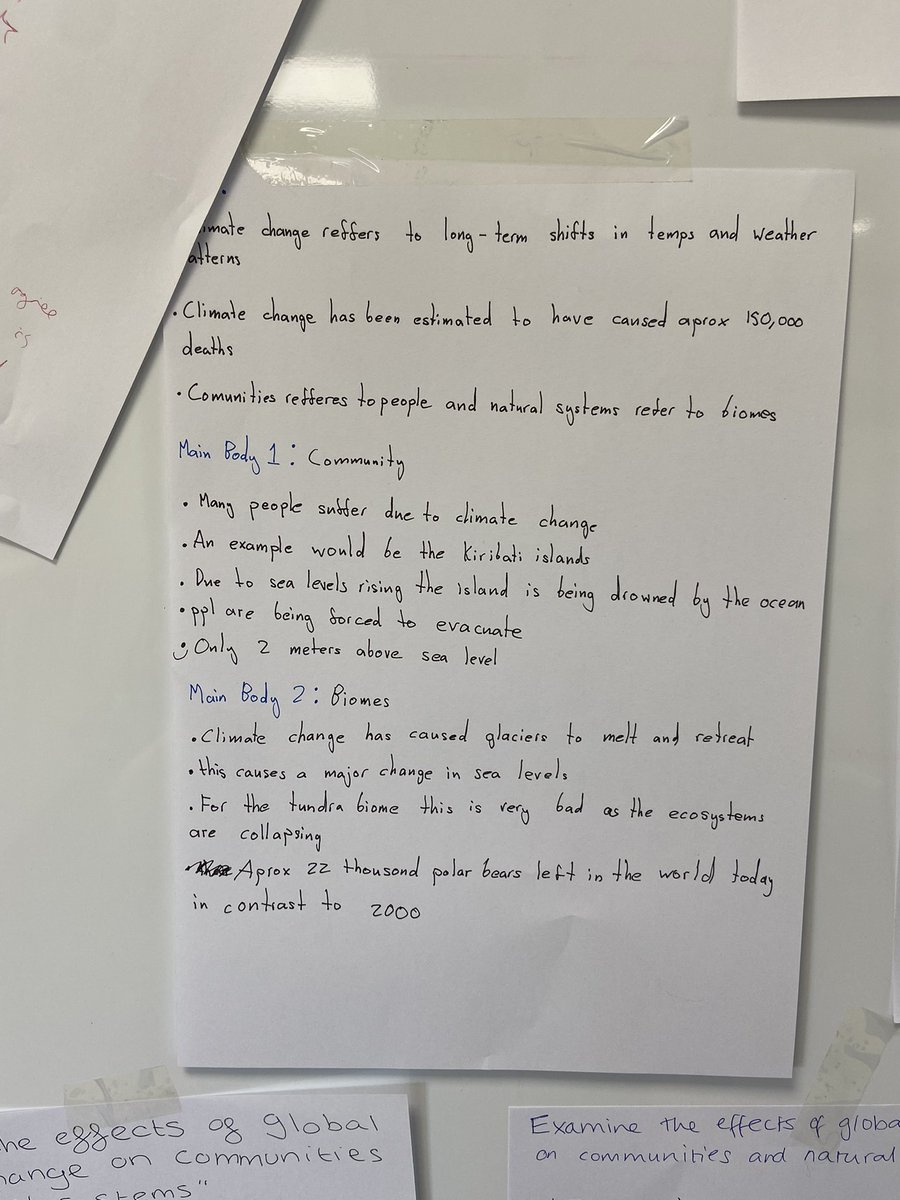 agree
is
change reffers to long-term shifts in temps and weather
• Climate change has been estimated to have caused aprox 150,000
deaths
• Comunities refferes to people and natural systems refer to biomes
Main Body 1: Community
• Many people suffer due to climate change
• An example would be the Kiribati islands
• Due to sea levels rising the island is being drowned by the ocean
• ppl are being forced to evacuate
Only 2 meters above sea level
Main Body 2: Biomes
• Climate change has caused glaciers to melt and retreat
• this causes a major change in sea levels
• For the tundra biome this is very bad as the ecosystems
are collapsing
Aprox 22 thousond polar bears left in the world today
in contrast to 2000
effects of global
on communities
Examine the effects of
on communities and natural